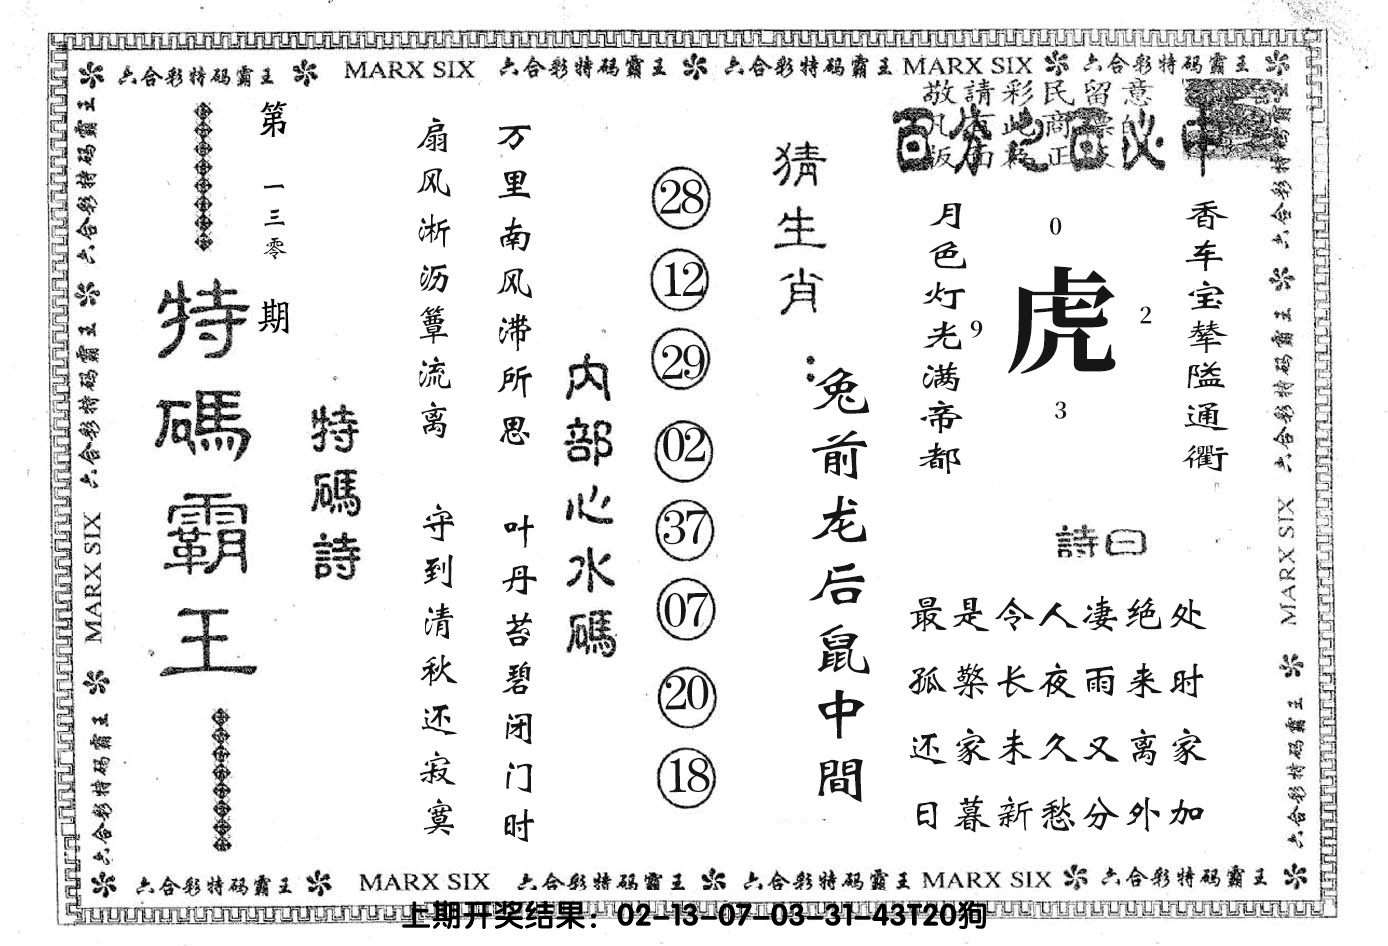 六合彩特码霸王 MARX SIX 六合彩特码霸王 六合彩特码霸王 MARX SIX 六合彩特码霸王
敬請彩民留意
百分之百必中
香车宝辇隘通衢
月色灯光满帝都
0
9
虎
2
3
詩曰
最是令人凄绝处
孤檠长夜雨来时
还家未久又离家
日暮新愁分外加
猜生肖:
兔前龙后鼠中間
28
12
29
02
37
07
20
18
内部心水碼
万里南风滞所思
叶丹苔碧闭门时
扇风淅沥簟流离
守到清秋还寂寞
特碼詩
第一三零期
特碼霸王
六合彩特码霸王 六合彩特码霸王 MARX SIX 六合彩特码霸王
六合彩特码霸王 六合彩特码霸王 MARX SIX 六合彩特码霸王
六合彩特码霸王 MARX SIX 六合彩特码霸王 六合彩特码霸王 MARX SIX 六合彩特码霸王
上期开奖结果：02-13-07-03-31-43T20狗